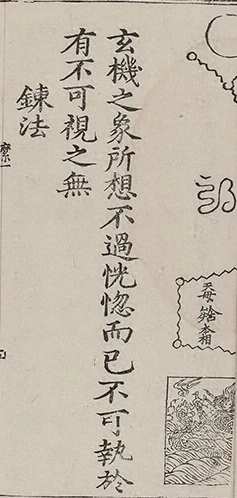 天母
本相
玄機之象所想不過恍惚而已不可執於
有不可視之無
鍊法